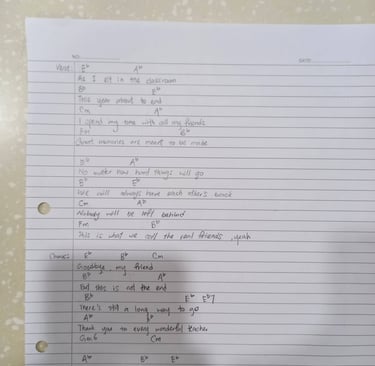 NO.
DATE
Verse: Eb Ab
As I sit in the classroom
Bb Eb
This year about to end
Cm Ab
I spend my time with all my friends
Fm Bb
Great memories are meant to be made
Eb Ab
No matter how hard things will go
Bb Eb
We will always have each other's back
Cm Ab
Nobody will be left behind
Fm Bb
This is what we call the real friends, yeah
Chorus: Eb Bb Cm
Goodbye, my friend
Bb Ab
But this is not the end
Bb Eb Eb7
There's still a long way to go
Ab Bb
Thank you to every wonderful teacher
Cm
Ab Bb Eb